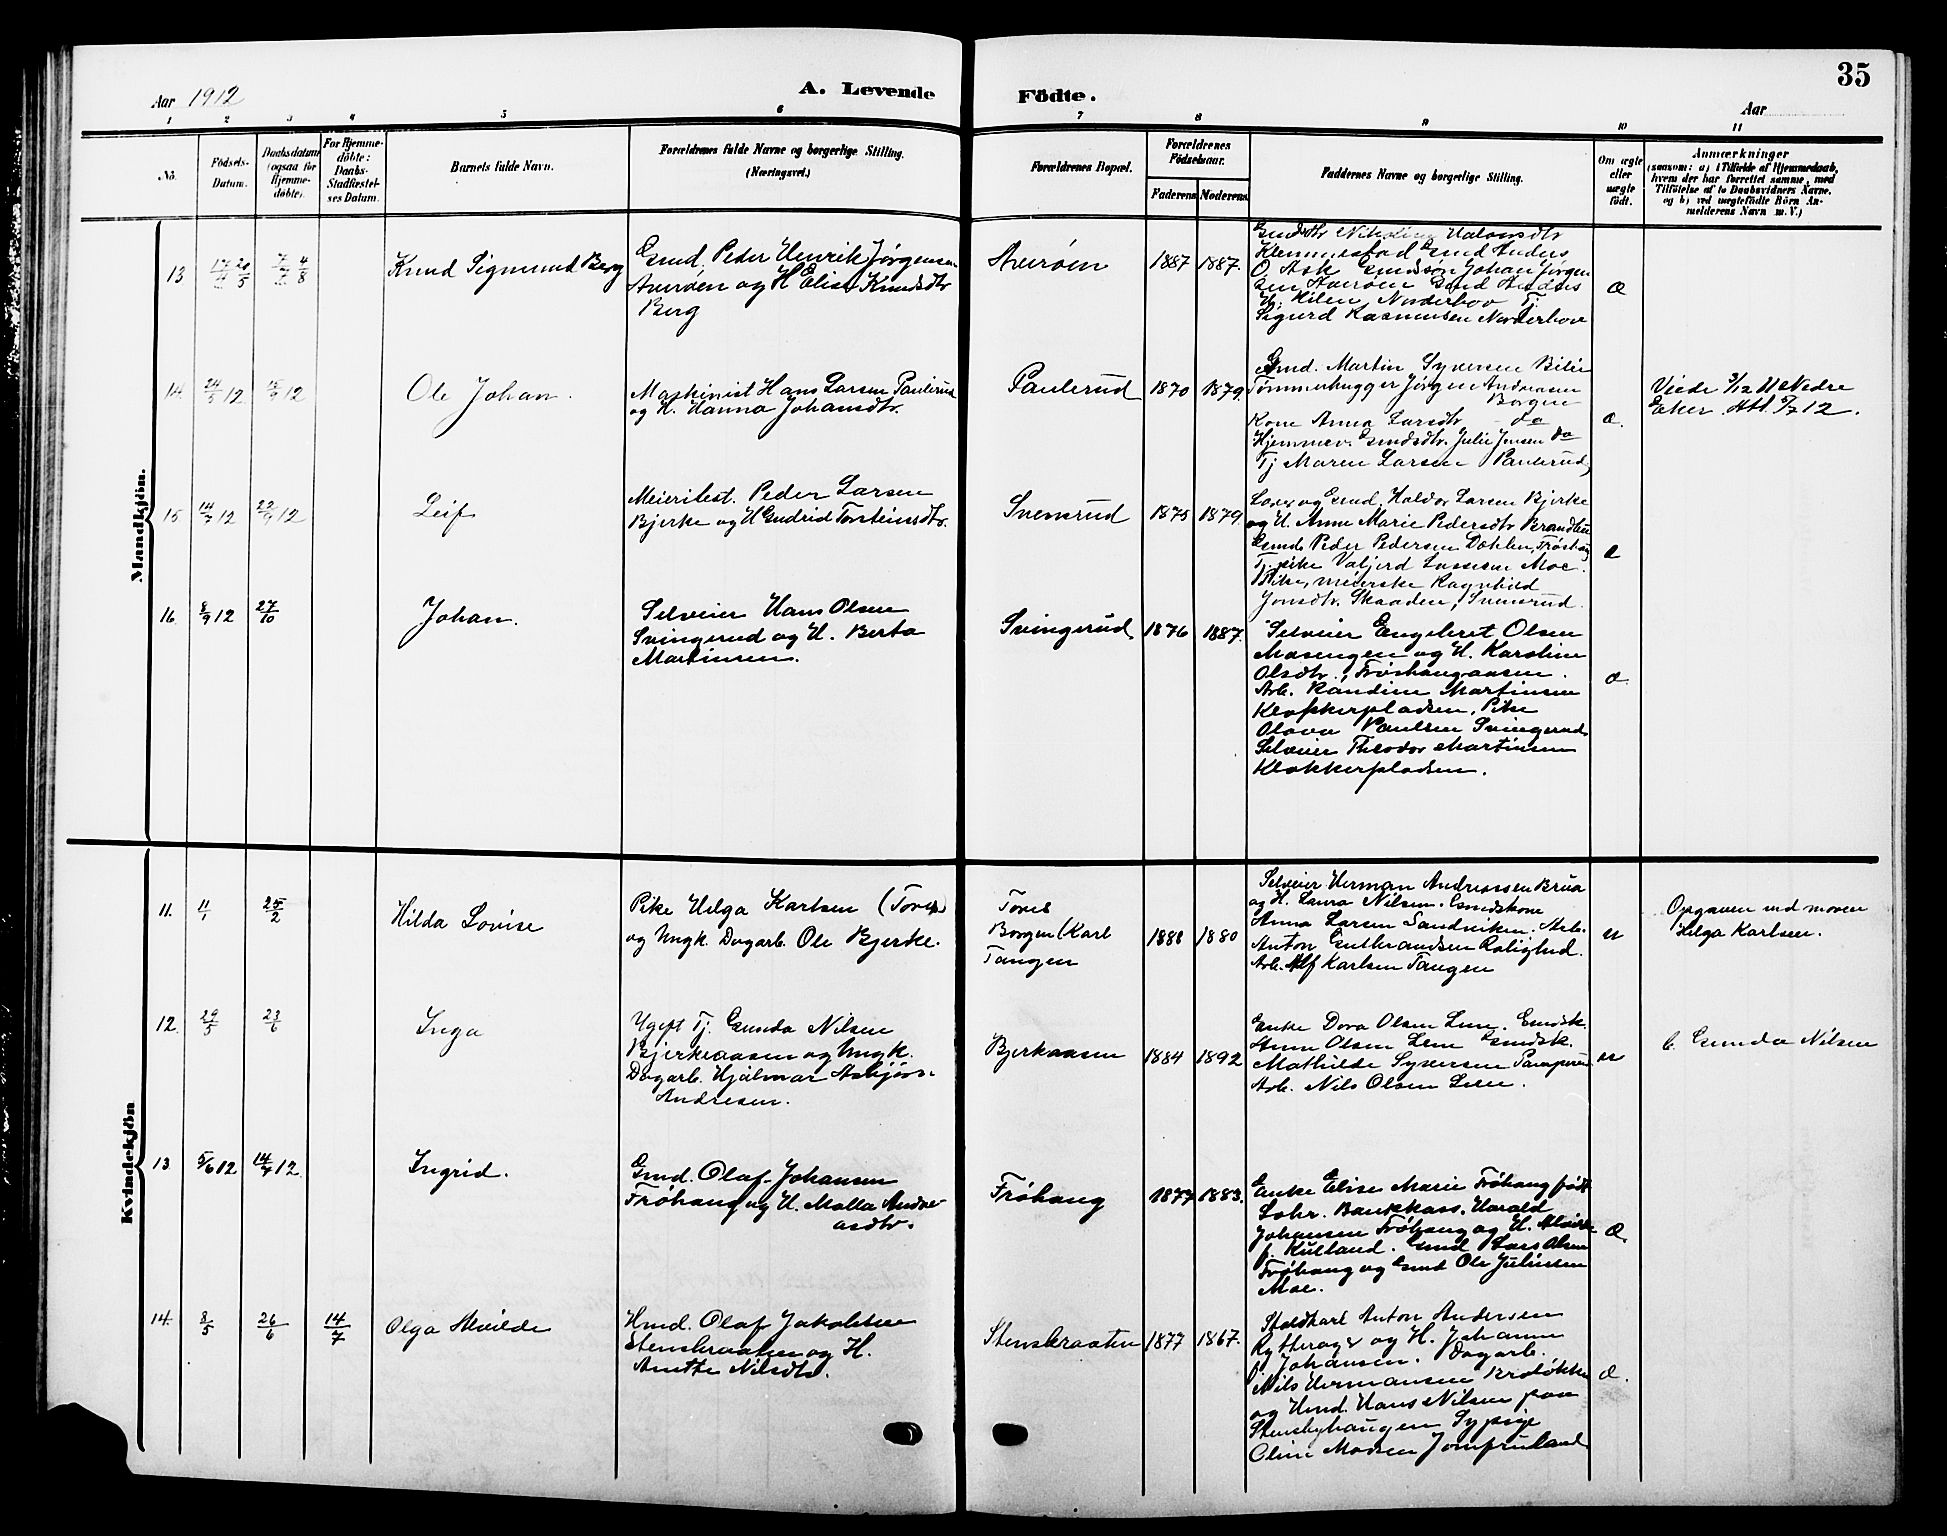 35
Aar 1912
A. Levende
Födte.
Aar
1 2 3 4 5 6 7 8 9 10 11
No.
Födsels-
Datum.
Daabsdatum
(ogsaa for
Hjemme-
döbte).
For Hjemme-
döbte:
Daabs-
Stadfæstel-
ses Datum.
Barnets fulde Navn.
Forældrenes fulde Navne og borgerlige Stilling.
(Næringsvei.)
Forældrenes Bopæl.
Forældrenes
Födselsaar.
Faderens
Moderens
Faddernes Navne og borgerlige Stilling.
Om ægte
eller
uægte
födt.
Anmærkninger
(saasom: a) i Tilfælde af Hjemmedaab,
hvem der har forrettet samme, med
Tilföielse af to Daabsvidners Navne,
og b) ved uægtefödte Börn An-
melderens Navn m. V.)
Mandkjön.
13
7/7 4/8
Knud Sigmund Berg
Gmd. Peder Henrik Jörgensen
Averøen og H Elise Knudsdtr
Berg
Averöen
1887 1887.
Klemmestad Gmd Anders
O. Ask Gmdssøn Johan Jörgen
sen Averöen Gmd Anders
Hilen, Norderhov Tj.
Sigurd Rasmussen Norderhov
Æ
14.
24/5 12
15/9 12
Ole Johan.
Maskinist Hans Larsen Paulerud
og H. Hanna Johansdtr.
Paulerud
1870 1879.
Gmd. Martin Syversen Bilie
Tømmerhugger Jörgen Andreasen
Borgen
Kone Anna Larsdtr do
Hjemmev. Gmdsdtr. Julie Jensen do
Tj Maren Larsen Paulerud,
Æ.
Viede 3/12 11 Nedre
Eker. Att. 5/2 12.
15
14/7 12
22/9 12
Leif
Meieribest. Peder Larsen
Bjerke og H Gudrid Torsteinsdtr.
Svensrud
1875 1879.
Laver og Gmd. Haldor Larsen Bjerke
og H. Anne Marie Pedersdtr Brandlie
Gmds Peder Pedersen Dohlen, Fröshaug
Tj. pike Valjerd Lassesen Moe.
Pike, meierske Ragnhild
Jonsdtr. Skaaden, Svensrud.
Æ
16.
8/9 12
27/10
Johan.
Selveier Hans Olsen
Svingerud og H. Berta
Martinsen.
Svingerud
1876 1887.
Selveier Engebret Olsen
Masengen og H. Karoline
Olsdtr., Fröshaugaasen.
Arb. Randine Martinsen
Klokkerpladsen, Pike
Olava Paulsen Svingerud,
Selveier Theodor Martinsen
Klokkerpladsen.
Æ.
Kvindekjön
11.
11/1
25/2
Hilda Lovise
Pike Helga Karlsen (Tores)
og Ungk. Dagarb. Ole Bjerke.
Tores
Borgen (Karl
Tangen
1888 1880
Selveier Herman Andreassen Brua
og H. Laura Nilsen. Gmdskone
Anna Larsen Sandviken. Arb.
Anton Gulbrandsen Rolighed.
Arb. Alf Karlsen Tangen
u
Opgaven ved moren
Helga Karlsen.
12.
29/5
23/6
Inga
Ugift Tj. Gunda Nilsen
Bjerkeaasen og Ungk.
Dagarb. Hjalmar Asbjørn
Andresen.
Bjerkaasen
1884 1892
Enke Dora Olsen Lien. Gmdsk.
Anne Olsen Lien Gmdsk.
Mathilde Syversen
Arb. Nils Olsen Lien.
u
Gunda Nilsen
13.
5/6 12
14/7 12
Ingrid.
Gmd. Olaf Johansen
Fröhaug og H. Malla Andre
asdtr.
Fröhaug
1877 1883.
Enke Elise Marie Fröhaug född
Lohr. Bankkass. Harald
Johansen Fröhaug og H. Alvilde
f. Kulland. Gmd Lars Olsen
Fröhaug og Gmd Ole Juliussen
Moe.
Æ
14.
8/5
26/6
14/7
Olga Alvilde
Hmd. Olaf Jakobsen
Stensbraaten og H.
Anette Nilsdtr.
Stensbraaten
1877 1867.
Staldkarl Anton Andersen
Rytterager og H. Johanne
f. Johansen. Dagarb.
Nils Hermansen Braløkke
og Hmd. Hans Nilsen paa
Stensbyhaugen Sypige
Oline Madsen Jomfruland
Æ.